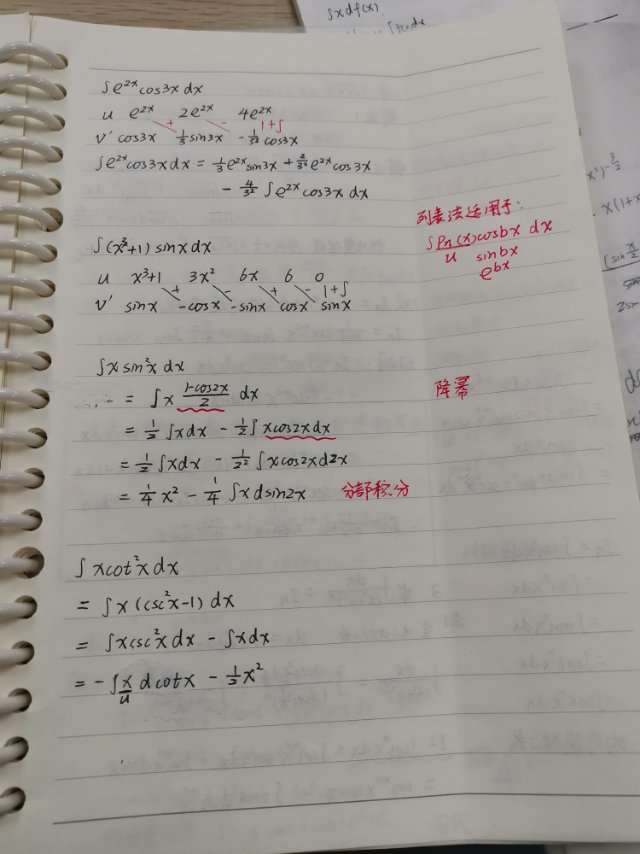 ∫xdf(x)
∫e^{2x}cos3x dx
u e^{2x} 2e^{2x} 4e^{2x}
+ - 1+∫
v' cos3x 1/3 sin3x -1/3² cos3x
∫e^{2x}cos3x dx = 1/3 e^{2x}sin3x + 2/3² e^{2x}cos3x
- 4/3² ∫e^{2x}cos3x dx
列表法适用于:
∫Pn(x)cosbx dx
u sinbx
e^{bx}
∫(x³+1) sinx dx
u x³+1 3x² 6x 6 0
+ - + - 1+∫
v' sinx -cosx -sinx cosx sinx
∫x sin²x dx
= ∫x (1-cos2x)/2 dx 降幂
= 1/2 ∫xdx - 1/2 ∫xcos2xdx
= 1/2 ∫xdx - 1/2² ∫xcos2xd2x
= 1/4 x² - 1/4 ∫xdsin2x 分部积分
∫xcot²x dx
= ∫x(csc²x-1) dx
= ∫xcsc²x dx - ∫xdx
= -∫x dcotx - 1/2 x²
u